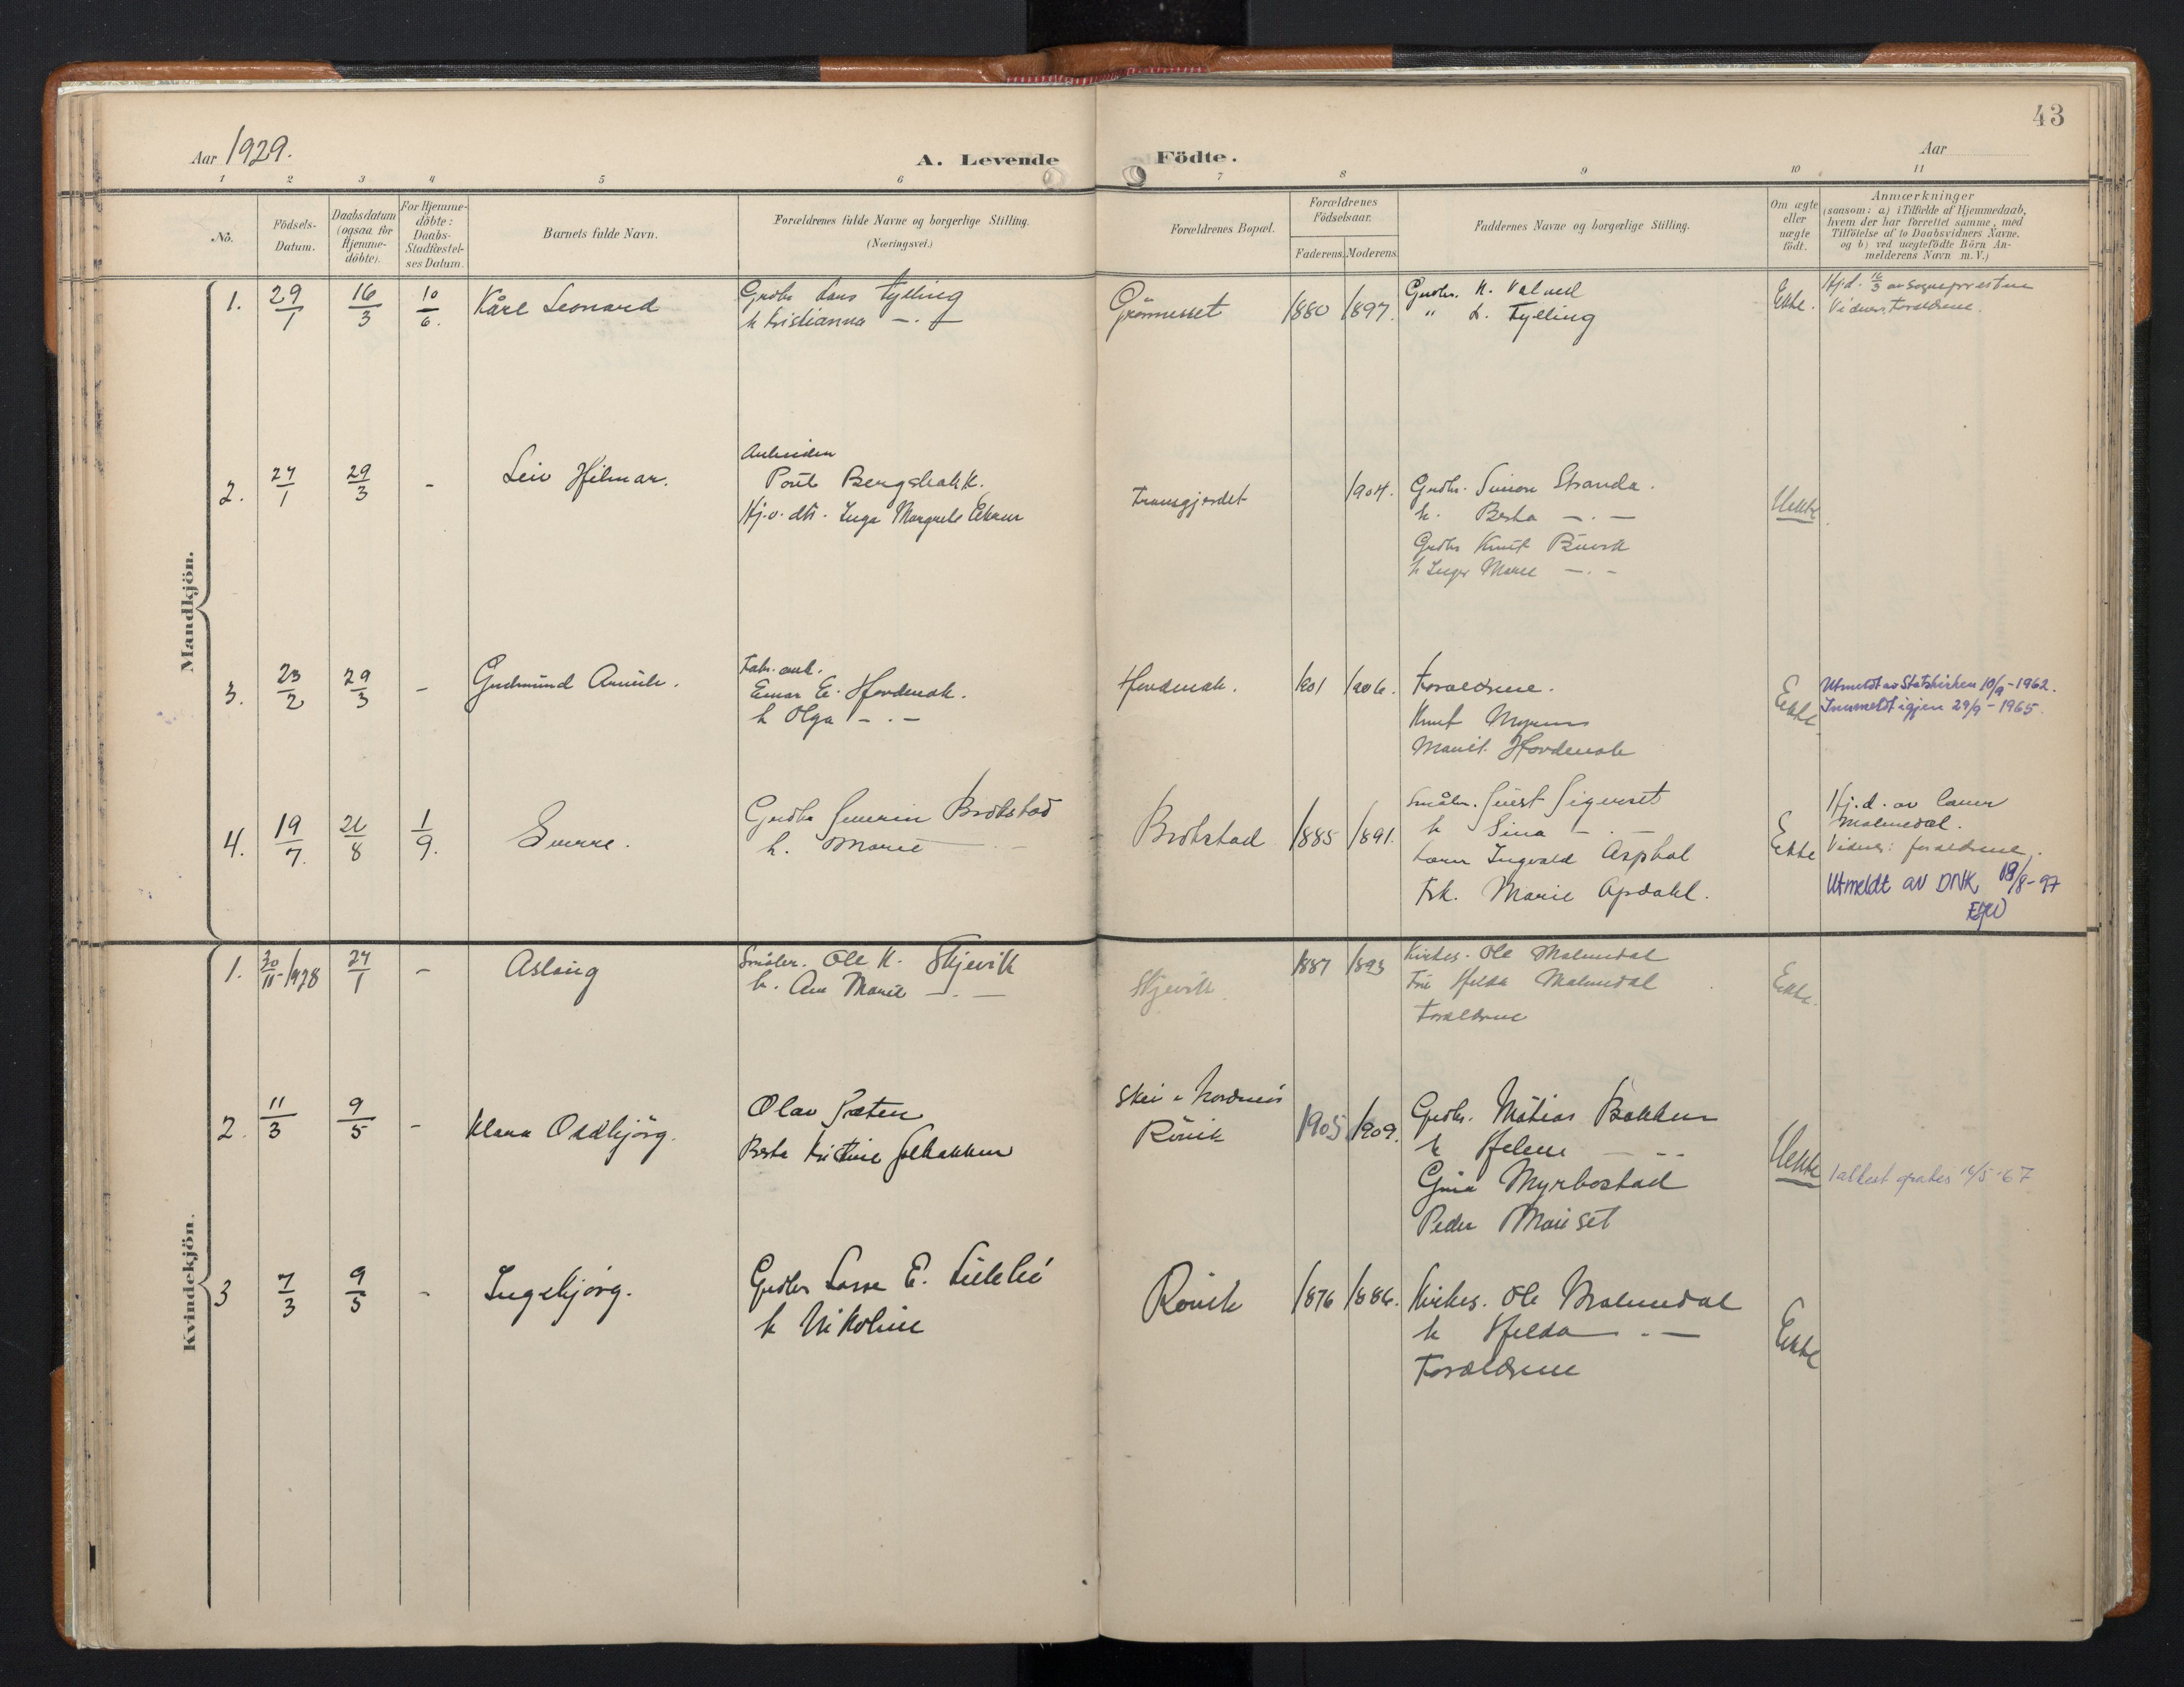 43
Aar 1929.
A. Levende Födte.
Aar
1 2 3 4 5 6 7 8 9 10 11
No.
Födsels-
Datum.
Daabsdatum
(ogsaa for
Hjemme-
döbte).
For Hjemme-
döbte:
Daabs-
Stadfæstel-
ses Datum.
Barnets fulde Navn.
Forældrenes fulde Navne og borgerlige Stilling.
(Næringsvei.)
Forældrenes Bopæl.
Forældrenes
Födselsaar.
Faderens. Moderens.
Faddernes Navne og borgerlige Stilling.
Om ægte
eller
uægte
födt.
Anmærkninger
(saasom: a) i Tilfælde af Hjemmedaab,
hvem der har forrettet samme, med
Tilföielse af to Daabsvidners Navne.
og b) ved uægtefödte Börn An-
melderens Navn m. V.)
Mandkjön.
1. 29/1 16/3 10/6. Kåre Leonard
Grdbr Lars Fylling
h Kristianna — . —
Grönnesset 1880 1897.
Grdbr. K. Valved
" L. Fylling
Ekte.
Hj.d. 16/3 av Sognepresten
Vidner, Foreldrene.
2. 27/1 29/3 - Leiv Hilmar.
Arbeider
Poul Bergsbakk.
Hj.v. dtr. Inga Margrete Ekrem
1904.
Grdbr. Simon Stranda.
h. Berta — . —
Grdbr Knut
h Inger Marie — . -
Uekte
3. 23/2 29/3 - Gudmund
Fabr. arb.
Einar E. Hovdenak.
h Olga — . —
Hovdenak. 1901 1906.
Foreldrene.
Knut
Marit. Hovdenak
Ekte
Utmeldt av Statskirken 10/9 - 1962.
Innmeldt igjen 29/9 - 1965.
4. 19/7. 26/8 1/9. Sverre.
Grdbr Severin Brokstad
h. Marie — . —
Brokstad 1885 1891.
Småbr.
h Sina — . —
Lærer Ingvald Asphol
Frk. Marie Opdahl.
Ekte
Hj.d. av Lærer
Malmedal.
Vidner: foreldrene.
Utmeldt av DNK 18/8-97
Kvindekjön.
1. 30/11-1928 27/1 - Aslaug
Småbr. Ole K. Skjevik
h. Ane Marie — . —
Skjevik 1887 1893
Kirkes. Ole Malmedal
Fru Hilda Malmedal
Foreldrene
Ekte.
2. 11/3 9/5 - Klara Oddbjörg.
Olav Sæten
Berte Kristine
Skei i Nordmör
Rövik 1905 1909.
Grdbr. Matias Bakken
h Helene — . -
Gina Myrbostad
Peder
Uekte
1 attest gratis
3 7/3 9/5 - Ingebjörg.
Grdbr Lasse E.
h Nikoline
Rövik 1876 1886.
Kirkes. Ole Malmedal
h Hilda — . —
Foreldrene
Ekte